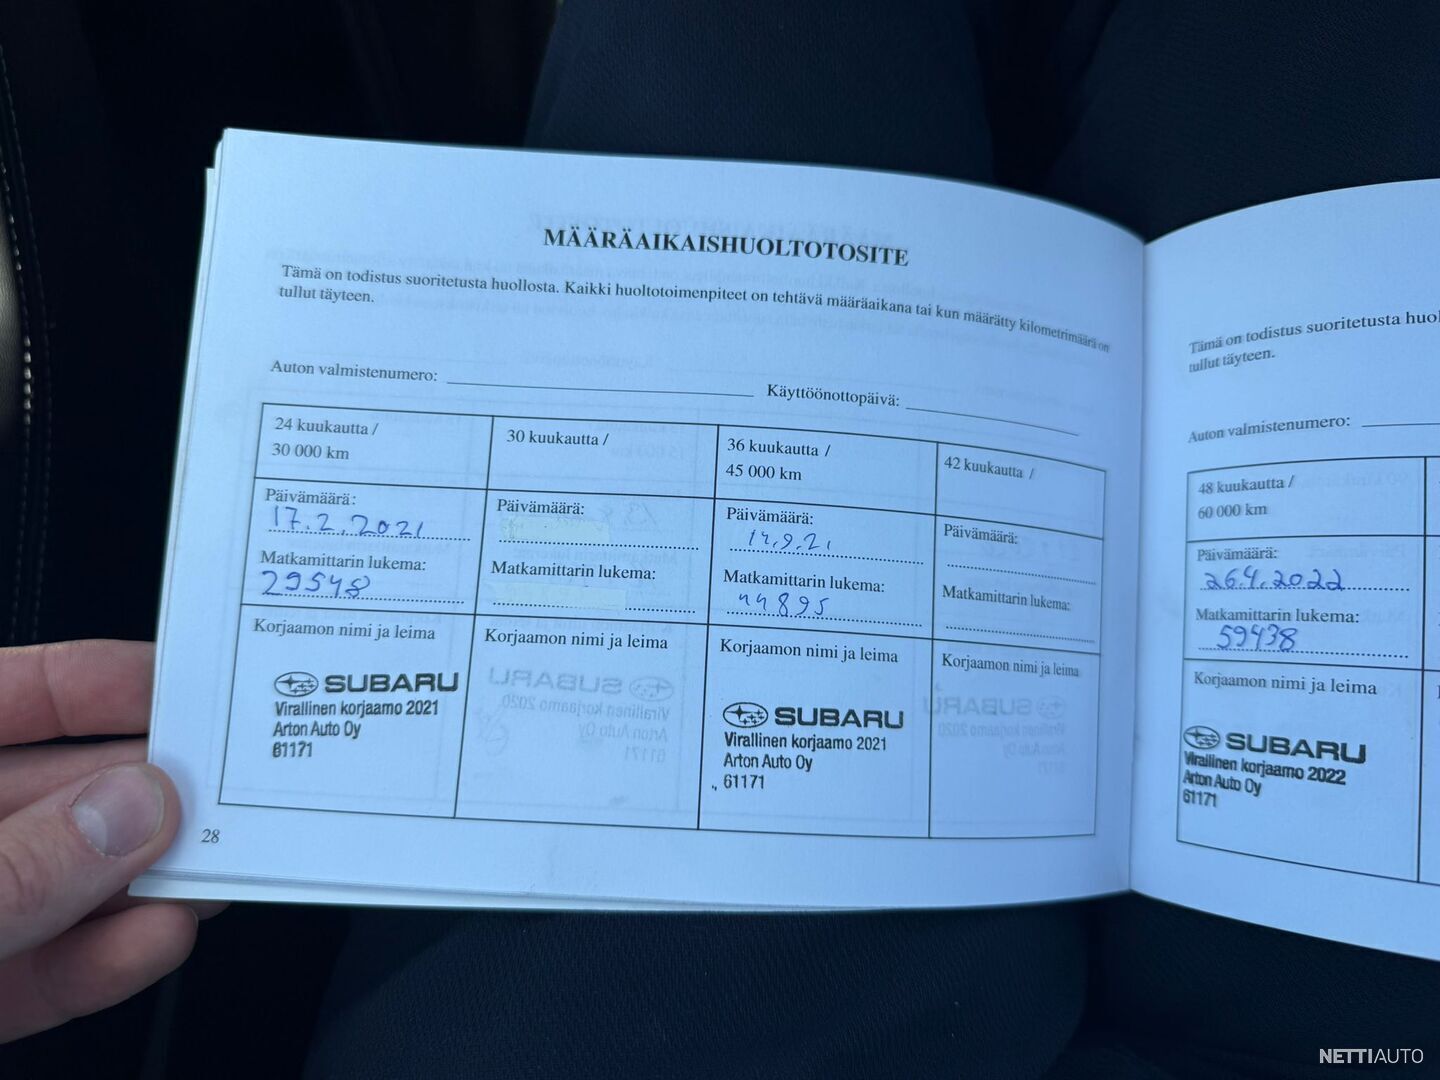 MÄÄRÄAIKAISHUOLTOTOSITE
Tämä on todistus suoritetusta huollosta. Kaikki huoltotoimenpiteet on tehtävä määräaikana tai kun määrätty kilometrimäärä on
tullut täyteen.
Auton valmistenumero:
Käyttöönottopäivä:
24 kuukautta /
30 000 km
Päivämäärä:
17.2.2021
Matkamittarin lukema:
29548
Korjaamon nimi ja leima
SUBARU
Virallinen korjaamo 2021
Arton Auto Oy
61171
30 kuukautta /
Päivämäärä:
Matkamittarin lukema:
Korjaamon nimi ja leima
36 kuukautta /
45 000 km
Päivämäärä:
14.9.21
Matkamittarin lukema:
44895
Korjaamon nimi ja leima
SUBARU
Virallinen korjaamo 2021
Arton Auto Oy
61171
42 kuukautta /
Päivämäärä:
Matkamittarin lukema:
Korjaamon nimi ja leima
28
Tämä on todistus suoritetusta
tullut täyteen.
Auton valmistenumero:
48 kuukautta /
60 000 km
Päivämäärä:
26.4.2022
Matkamittarin lukema:
59438
Korjaamon nimi ja leima
SUBARU
Virallinen korjaamo 2022
Arton Auto Oy
61171
NETTIAUTO